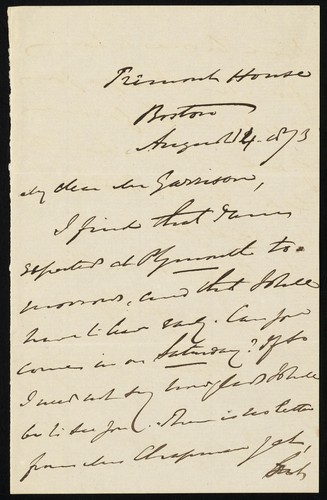 Tremont House
Boston
August 14. 1873
My dear Mr Garrison,
I find that I am
expected at Plymouth to-
morrow, and that I shall
have to leave early. Can you
come in on Saturday? If so
I need not say how glad I shall
be to see you. There is no letter
from Mrs Chapman yet,
but